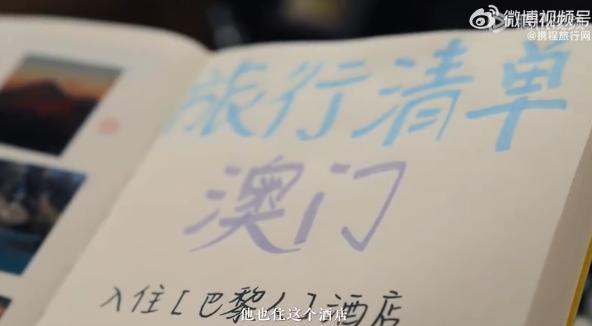 微博视频号
@携程旅行网
旅行清单
澳门
入住[巴黎人]酒店
他也住这个酒店